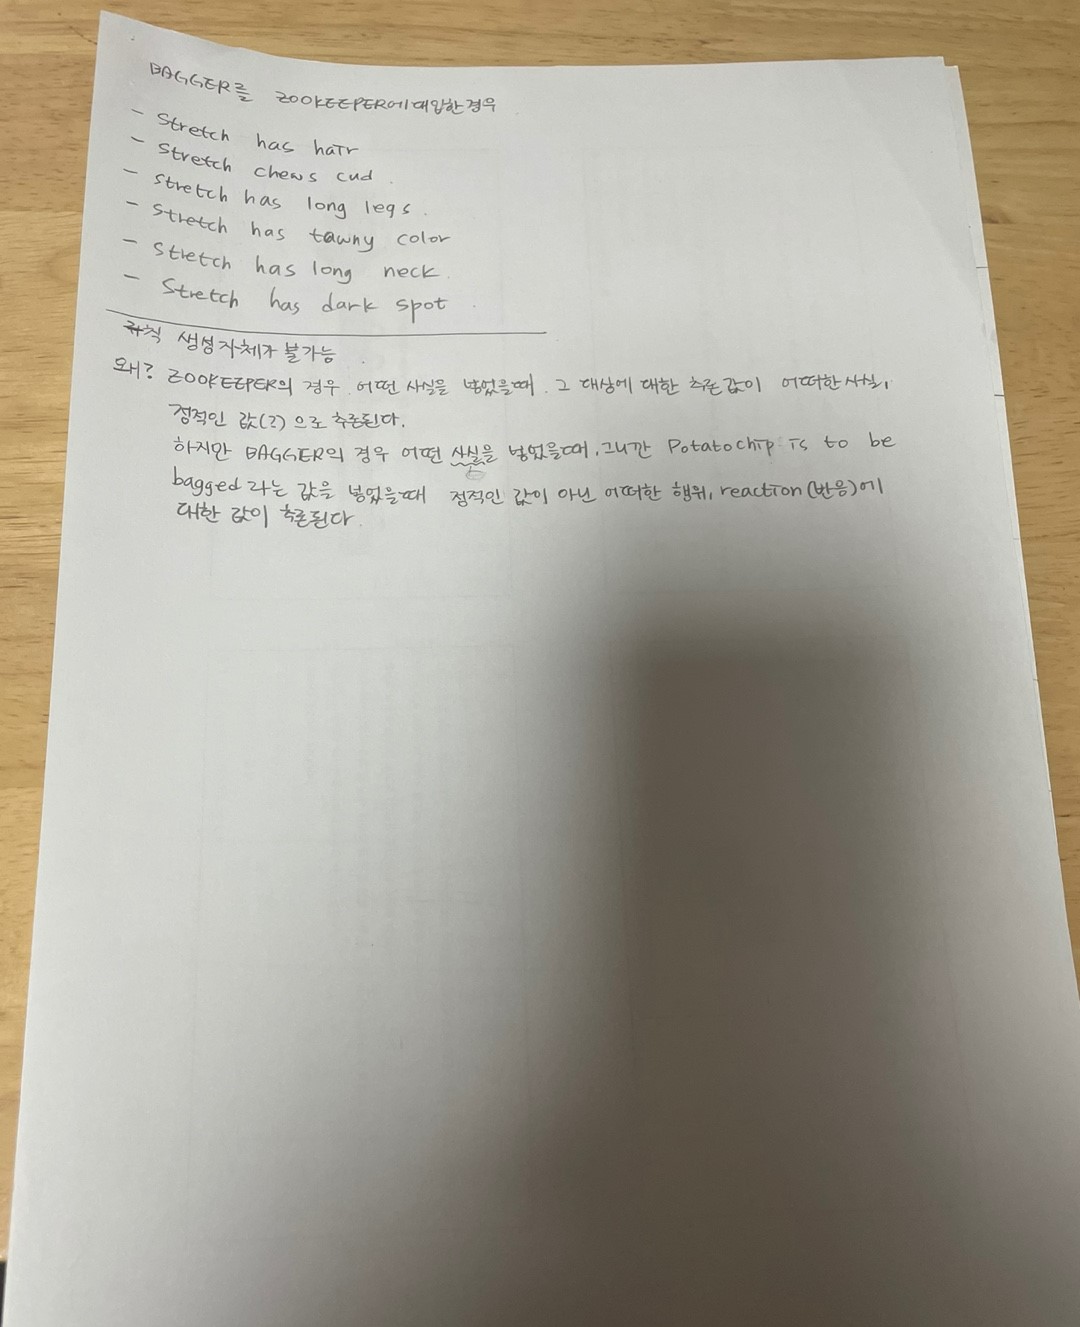 BAGGER를 ZOOKEEPER에 대입한 경우
- Stretch has hair
- Stretch chews cud.
- Stretch has long legs.
- Stretch has tawny color
- Stretch has long neck.
- Stretch has dark spot.
규칙 생성 자체가 불가능.
왜? ZOOKEEPER의 경우. 어떤 사실을 넣었을때. 그 대상에 대한 추론값이 어떠한 사실,
정적인 값(?)으로 추론된다.
하지만 BAGGER의 경우 어떤 사실을 넣었을때, 그니깐 Potatochip is to be
bagged 라는 값을 넣었을때 정적인 값이 아닌 어떠한 행위, reaction(반응)에
대한 값이 추론된다.